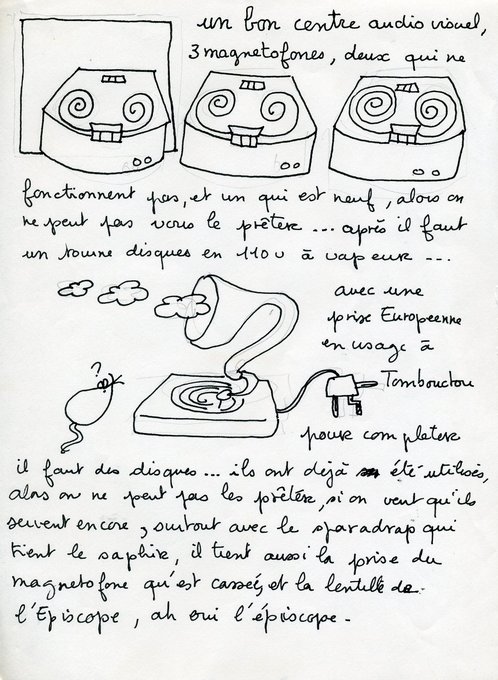 un bon centre audio visuel,
3 magnetofones, deux qui ne
fonctionnent pas, et un qui est neuf, alors on
ne peut pas vous le prêter... après il faut
un tourne disques en 110 v à vapeur...
avec une
prise Européenne
en usage à
Tombouctou
pour completer
il faut des disques... ils ont dejà été utilisés,
alors on ne peut pas les prêter, si on veut qu'ils
servent encore, surtout avec le sparadrap qui
tient le saphir, il tient aussi la prise du
magnetofone qu'est cassée, et la lentille de
l'Episcope, ah oui l'épiscope.
?